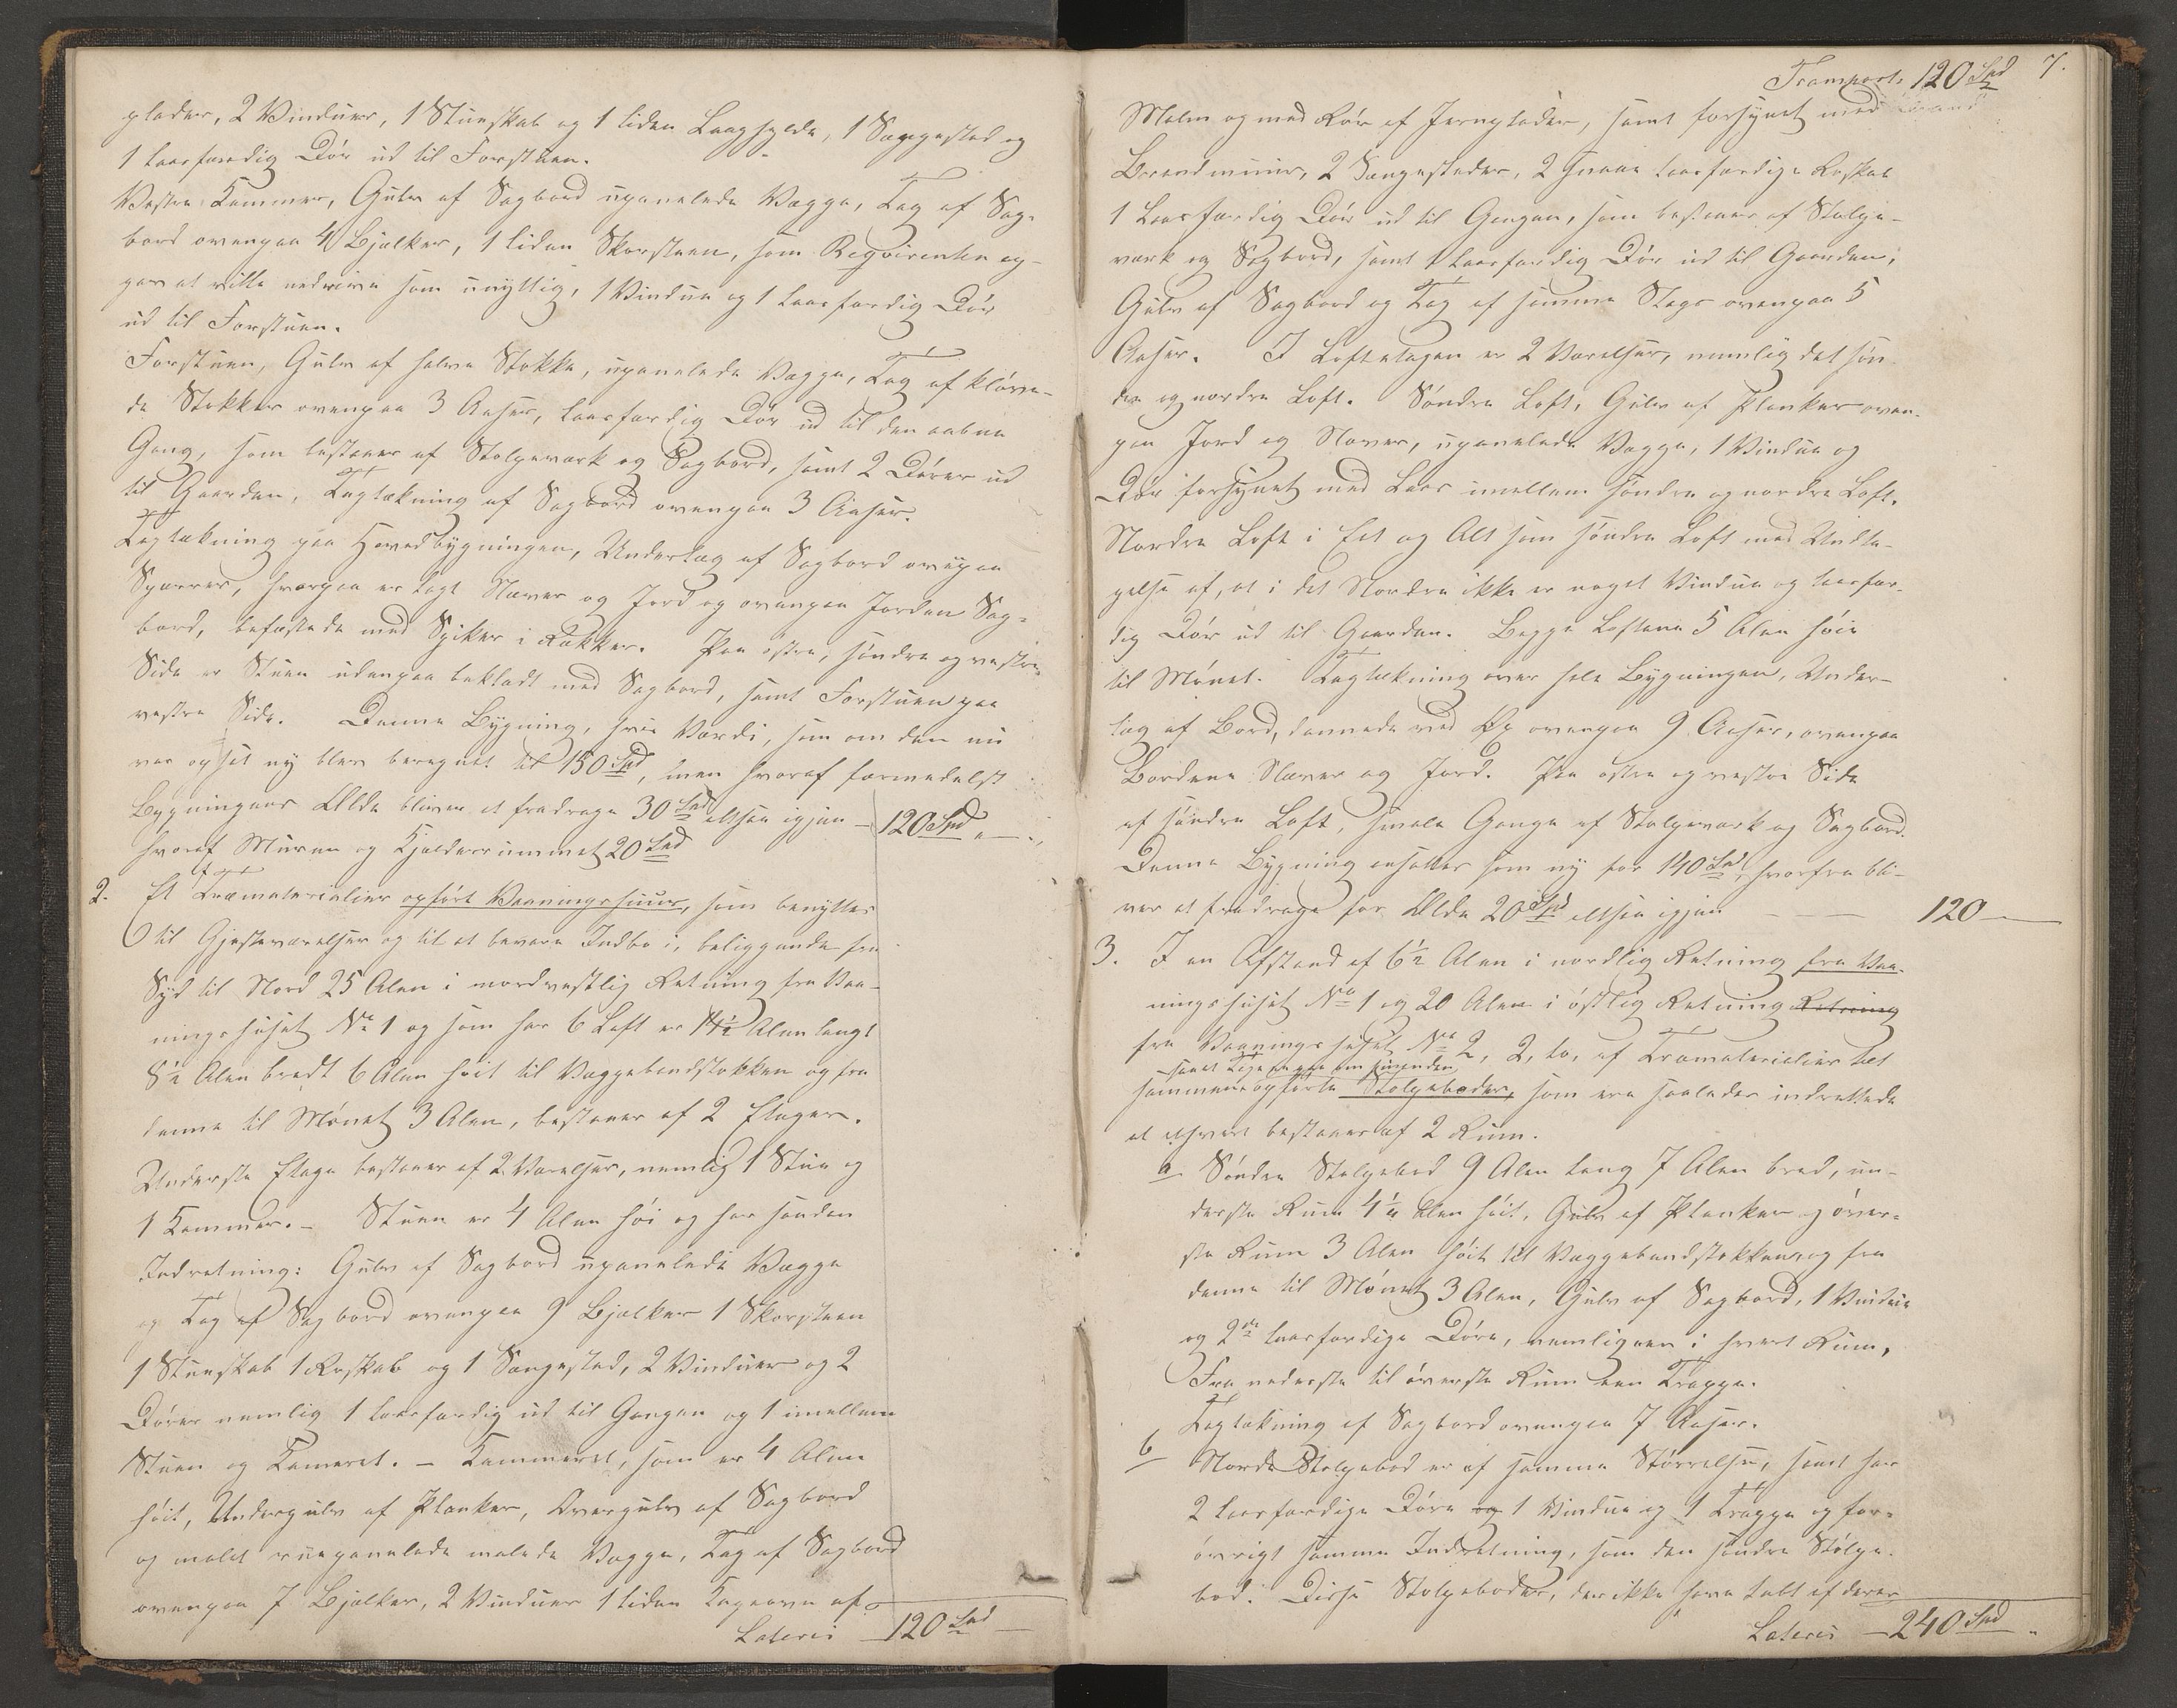 plader, 2 Vinduer, 1 Stueskab og 1 liden Laaghylde, 1 Sengested og
1 laasfærdig Dør ud til Forstuen.
Vestre Kammer, Gulv af Sagbord upanelede Vægge, Tag af Sag-
bord ovenpaa 4 Bjelker, 1 liden Skorsteen, som Reqvirenten og-
gav at ville nedrive som unyttig, 1 Vindue og 1 laasfærdig Dør
ud til Forstuen.
Forstuen, Gulv af halve Stokke, upanelede Vægge, Tag af kløve-
de Stokker ovenpaa 3 Aaser, laasfærdig Dør ud til den aabne
Gang, som bestaaer af Stolpeværk og Sagbord, samt 2 Dører ud
til Gaarden, Tagtækning af Sagbord ovenpaa 3 Aaser.
Tagtækning paa Hovedbygningen, Underlag af Sagbord ovenpaa
Sparrer, hvorpaa er lagt Næver og Jord og ovenpaa Jorden Sag-
bord, befæstede med Spiker i Rækker. Paa østre, søndre og vestre
Side er Stuen udenpaa beklædt med Sagbord, samt Forstuen paa
vestre Side. Denne Bygning, hvis Værdi, som om den nu
var opsat ny blev beregnet til 150 Spd, men hvoraf formedelst
Bygningens Ælde bliver at fradrage 30 Spd altsaa igjen — 120 Spd " —
hvoraf Muren og Kjelderrummet 20 Spd
2. Et af Træmaterialier opført Vaaningshuus, som benyttes
til Gjesteværelser og til at bevare Indbo i, beliggende fra
Syd til Nord 25 Alen i nordvestlig Retning fra Vaa-
ningshuset No 1 og som har 6 Loft er 14½ Alen langt
8½ Alen bredt 6 Alen høit til Væggebandstokken og fra
denne til Mønet 3 Alen, bestaaer af 2 Etager.
Underste Etage bestaaer af 2 Værelser, nemlig 1 Stue og
1 Kammer. — Stuen er 4 Alen høi og har saadan
Indretning: Gulv af Sagbord upanelede Vægge
og Tag af Sagbord ovenpaa 9 Bjelker 1 Skorsteen
1 Stueskab 1 Roskab og 1 Sengested, 2 Vinduer og 2
Dører nemlig 1 laasfærdig ud til Gangen og 1 imellem
Stuen og Kameret. — Kammeret, som er 4 Alen
høit, Undergulv af Planker, Overgulv af Sagbord
og malet upanelede malede Vægge, Tag af Sagbord
ovenpaa 7 Bjelker, 2 Vinduer 1 liden Kaqveovn af
Lateris — 120 Spd —
Transport 120 Spd 7.
Malm og med Rør af Jernplader, samt forsynet med
Brandmuur, 2 Sengesteder, 2 smaae laasfærdige Roskab
1 laasfærdig Dør ud til Gangen, som bestaaer af Stolpe-
værk og Sagbord, samt 1 laasfærdig Dør ud til Gaarden;
Gulv af Sagbord og Tag af samme Slags ovenpaa 5
Aaser. I Loftetagen er 2 Værelser, nemlig det søn-
dre og nordre Loft. Søndre Loft, Gulv af Planker oven-
paa Jord og Næver, upanelede Vægge, 1 Vindue og
Dør forsynet med Laas imellem søndre og nordre Loft.
Nordre Loft i Eet og Alt som søndre Loft med Undta-
gelse af, at i det Nordre ikke er noget Vindue og laasfær-
dig Dør ud til Gaarden. Begge Loftene 5 Alen høie
til Mønet. Tagtækning over hele Bygningen, Under-
lag af Bord, dannede ved Øx ovenpaa 9 Aaser, ovenpaa
Bordene Næver og Jord. Paa østre og vestre Side
af søndre Loft, smale Gange af Stolpeværk og Sagbord.
Denne Bygning ansættes som ny for 140 Spd, hvorfra bli-
ver at fradrage for Ælde 20 Spd altsaa igjen — — 120 —
3. I en Afstand af 6½ Alen i nordlig Retning fra Vaa-
ningshuset No 1 og 20 Alen i østlig Retning Retning
fra Vaaningshuset No 2, 2, to, af Træmaterialier tæt
sammenopførte Stolpeboder, som ere saaledes indrettede
at ethvert bestaaer af 2 Rum.
a Søndre Stolpebod 9 Alen lang 7 Alen bred, un-
derste Rum 4¼ Alen høit, Gulv af Planker og øver-
ste Rum 3 Alen høit til Væggebandstokken og fra
denne til Mønet 3 Alen, Gulv af Sagbord, 1 Vindue
og 2de laasfærdige Døre, nemlig een i hvert Rum,
Fra nederste til øverste Rum een Trappe.
Tagtækning af Sagbord ovenpaa 7 Aaser.
b Nordre Stolpebod er af samme Størrelse, samt har
2 laasfærdige Døre og 1 Vindue og 1 Trappe og for-
øvrigt samme Indretning, som den søndre Stolpe-
bod. Disse Stolpeboder, der ikke have tabt af deres
Lateris — 240 Spd "